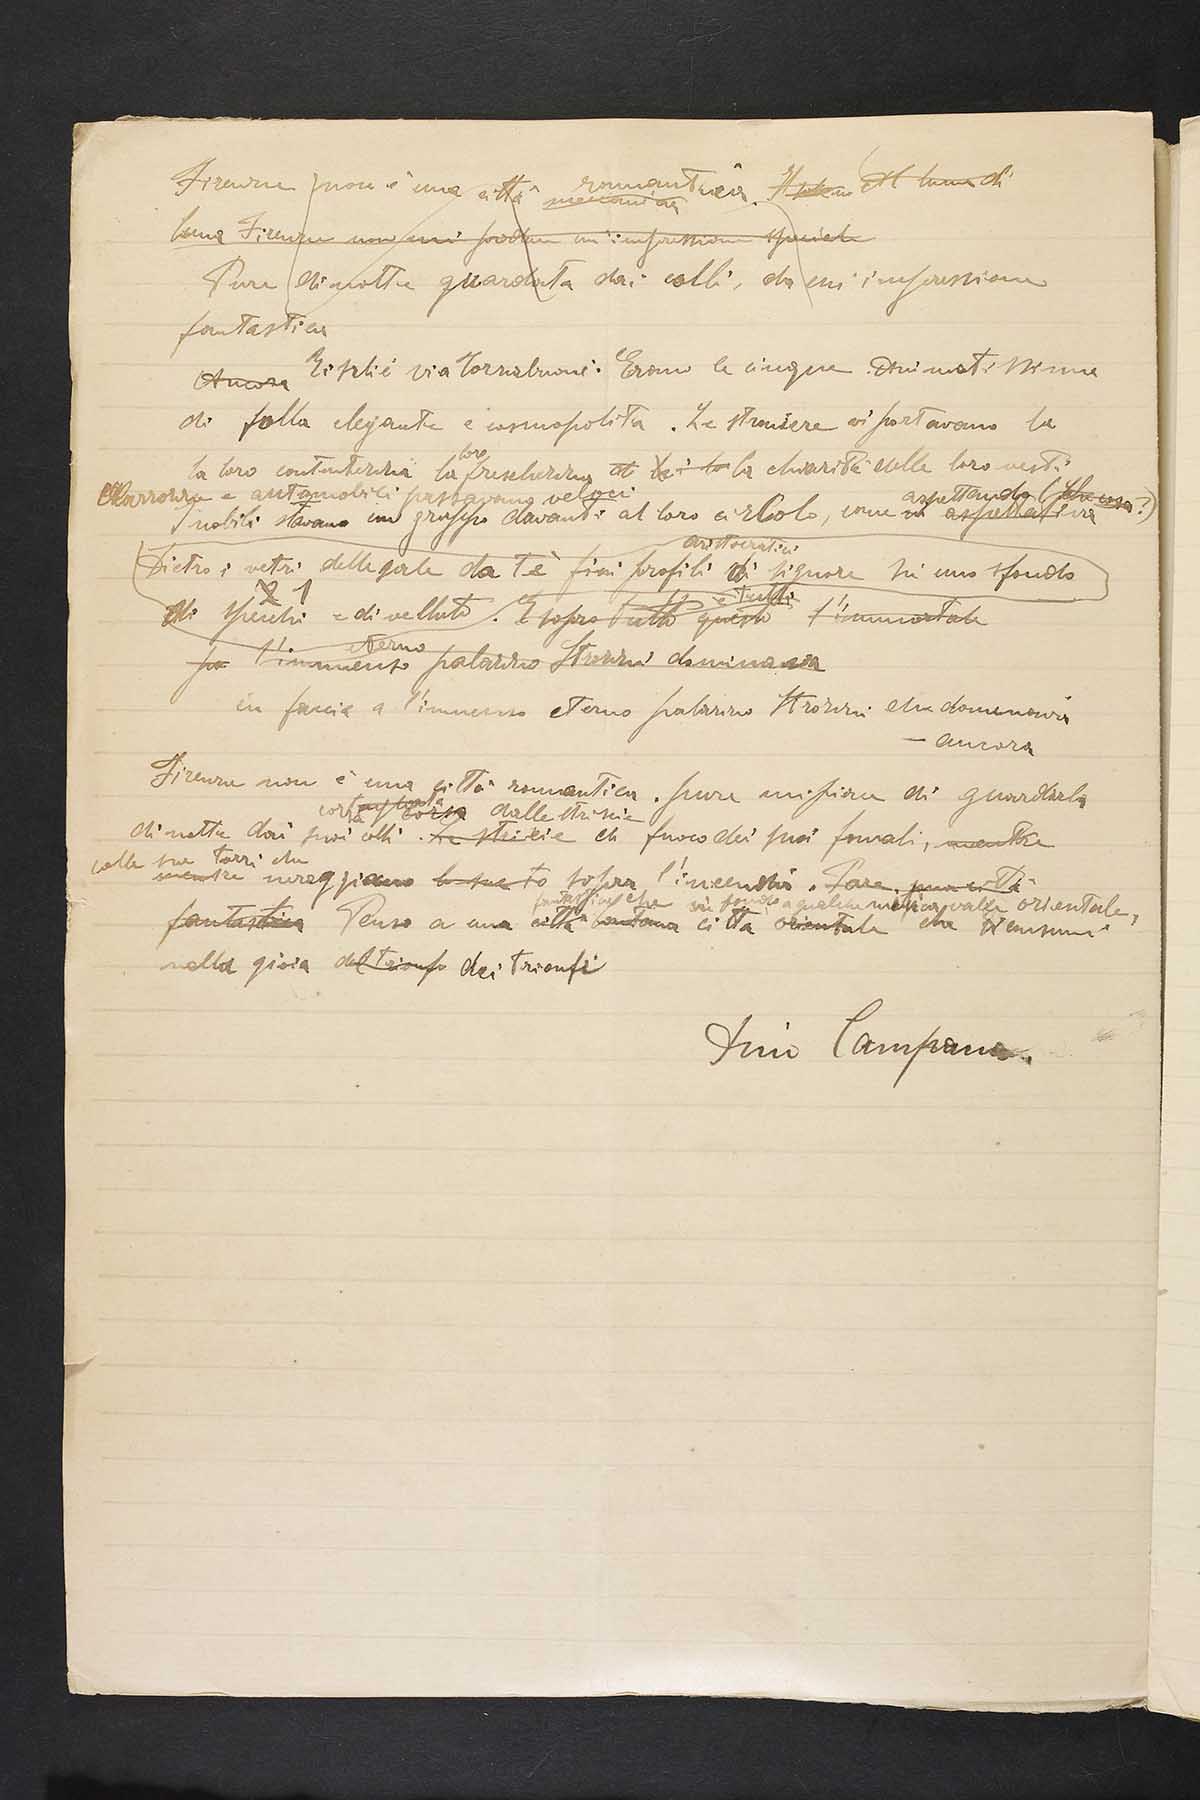 Firenze non è una città romantica
meccanica
luna Firenze non mi produce un'impressione speciale
Pure di notte guardata dai colli, da un'impressione
fantastica
Ancora Risalii via Tornabuoni. Erano le cinque. Animatissima
di folla elegante e cosmopolita. Le straniere vi portavano la
la loro contentezza la loro freschezza la chiarità delle loro vesti
Carrozze e automobili passavano veloci
I nobili stavano in gruppo davanti al loro circolo, come in aspettativa
aspettando (che cosa?)
Dietro i vetri delle sale da tè fini profili aristocratici di signore su uno sfondo
2 1
di specchi e di velluto. E sopra tutto questo l'immortale
e tutti
eterno
l'immenso palazzo Strozzi dominava
in faccia a l'immenso eterno palazzo Strozzi che dominava
– ancora
Firenze non è una città romantica. pure mi piace di guardarla
corsa dalle striscie
di notte dai suoi colli. Le striscie di fuoco dei suoi fanali, mentre
colle sue torri che
mentre nereggiano le sue to sopra l'incendio. Pare una città
fantastica che in fondo a qualche magica valle orientale,
fantastica Penso a una città lontana città orientale che si consumi
nella gioia del trionfo dei trionfi
Dino Campana.